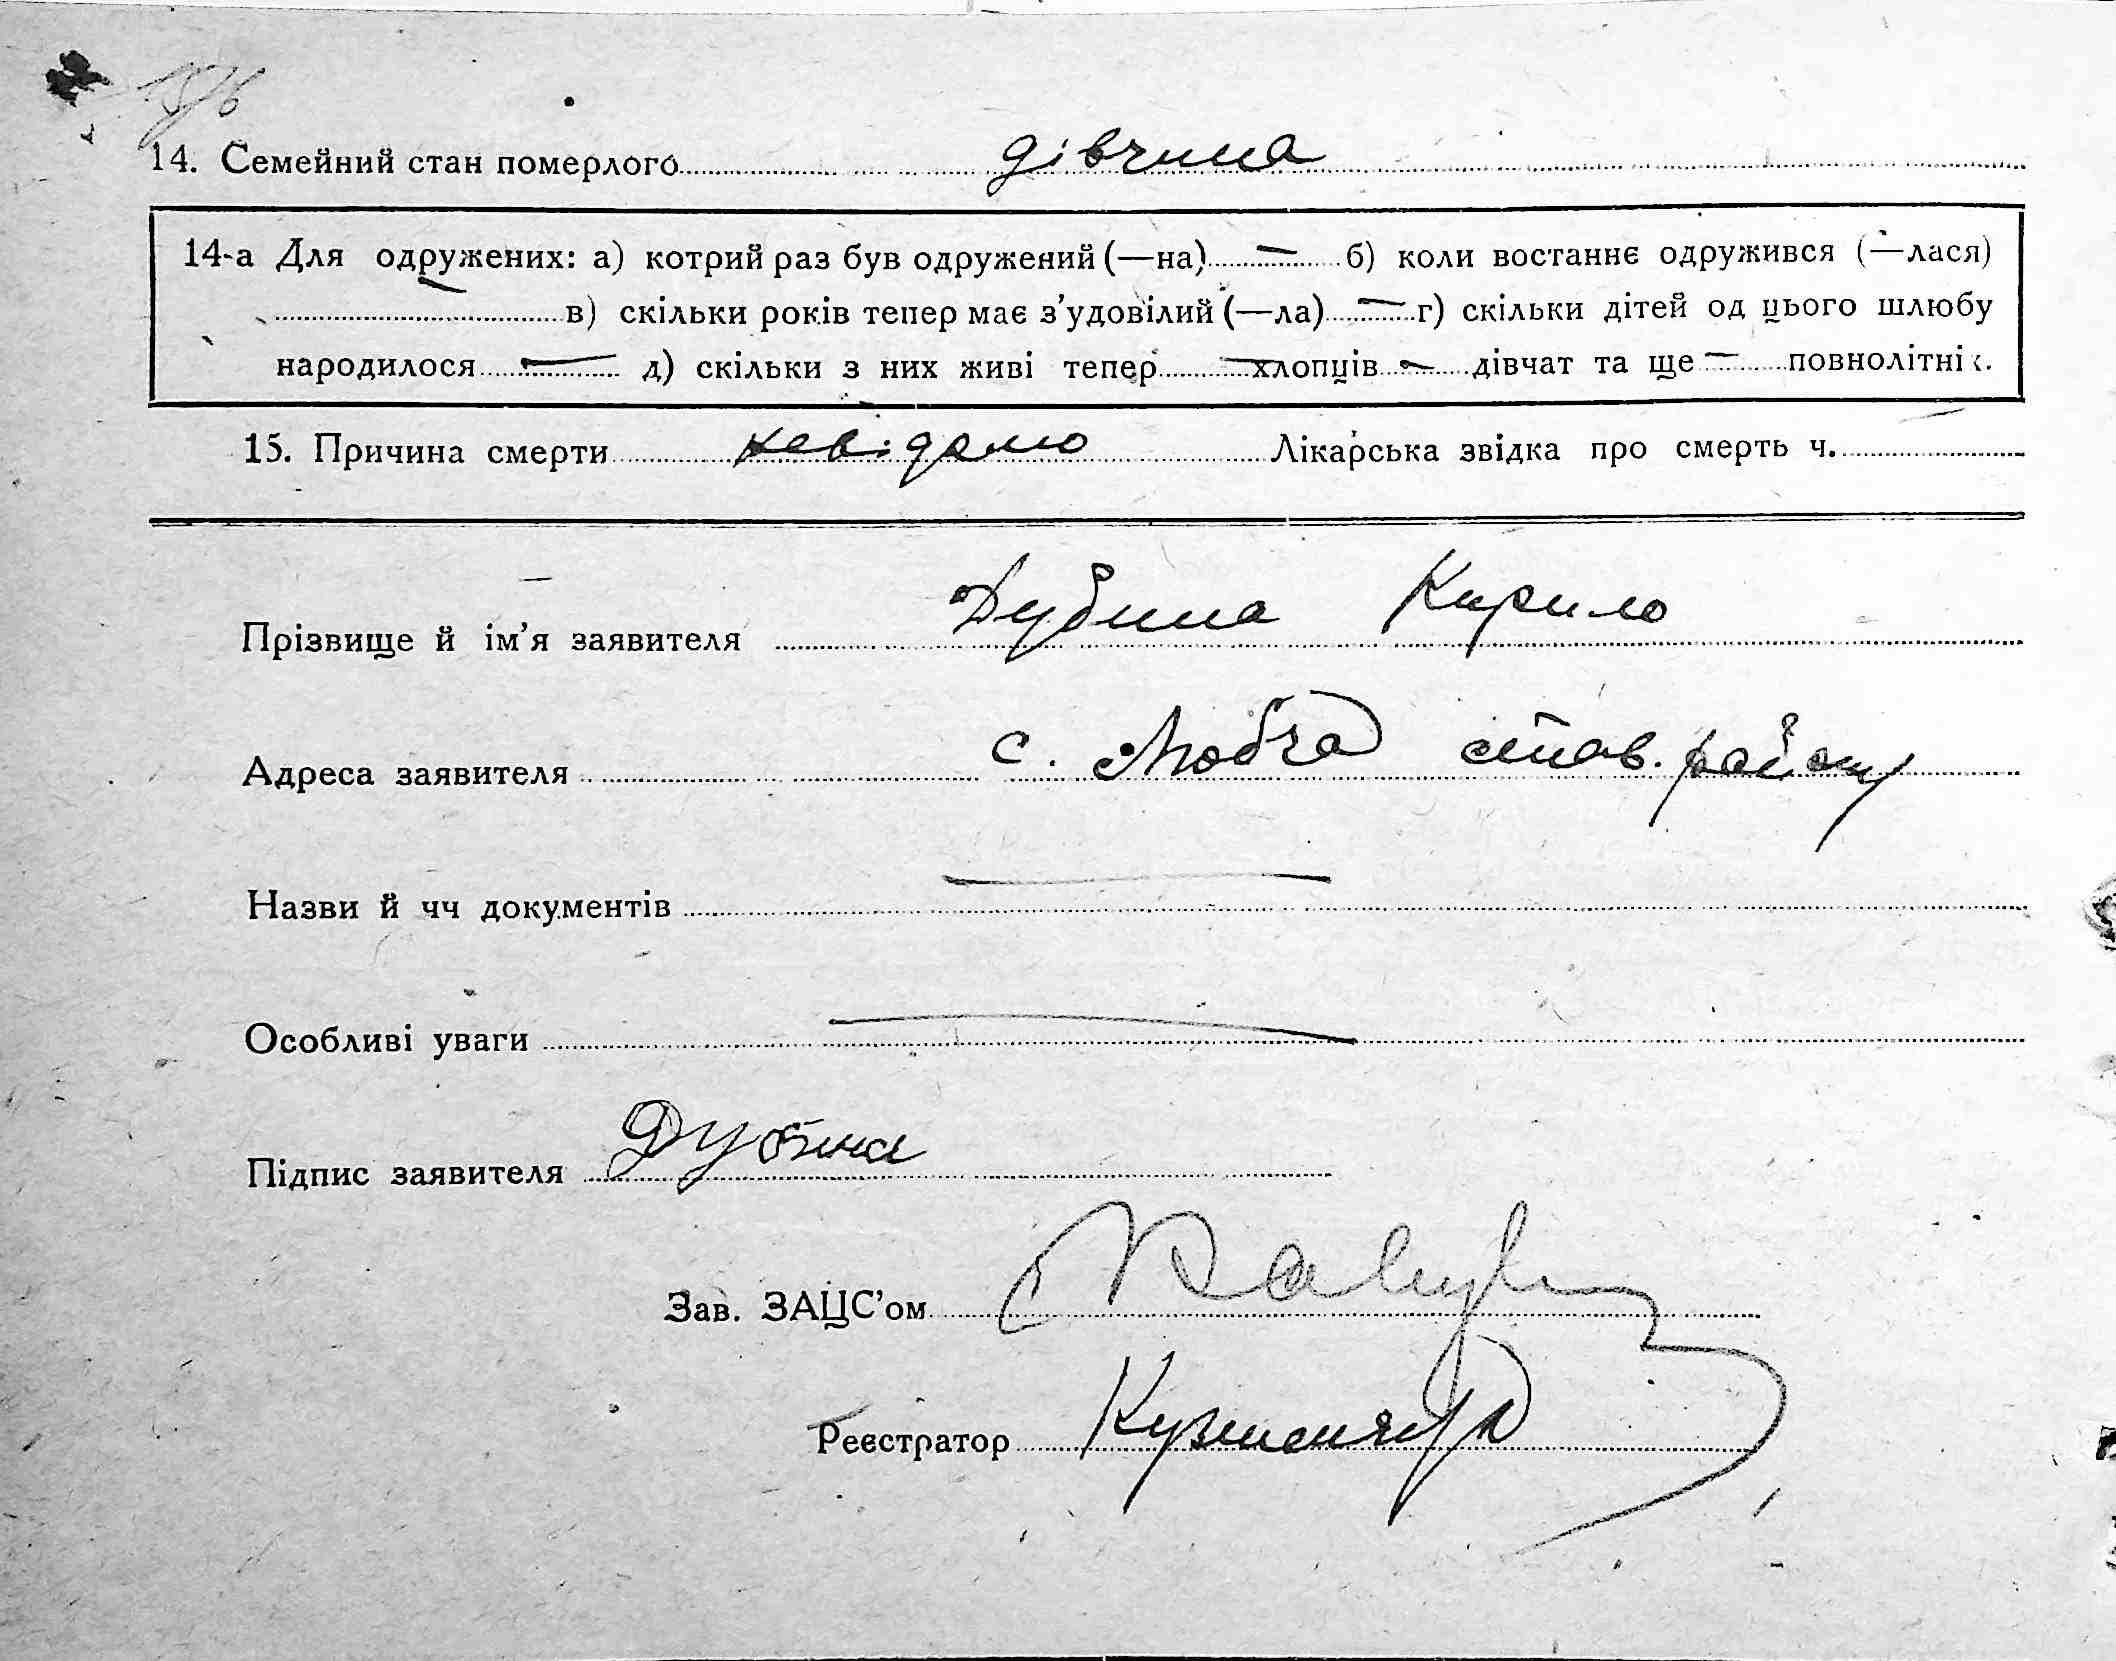 14. Семейний стан померлого дівчина
14-а Для одружених: а) котрий раз був одружений (—на) — б) коли востаннє одружився (—лася)
— в) скільки років тепер має з'удовілий (—ла) — г) скільки дітей од цього шлюбу
народилося — д) скільки з них живі тепер — хлопців — дівчат та ще — повнолітніх.
15. Причина смерти невідомо Лікарська звідка про смерть ч.
Прізвище й ім'я заявителя Дубина Кирило
Адреса заявителя с. Любча став. району
Назви й чч документів —
Особливі уваги —
Підпис заявителя Дубина
Зав. ЗАЦС'ом
Реєстратор